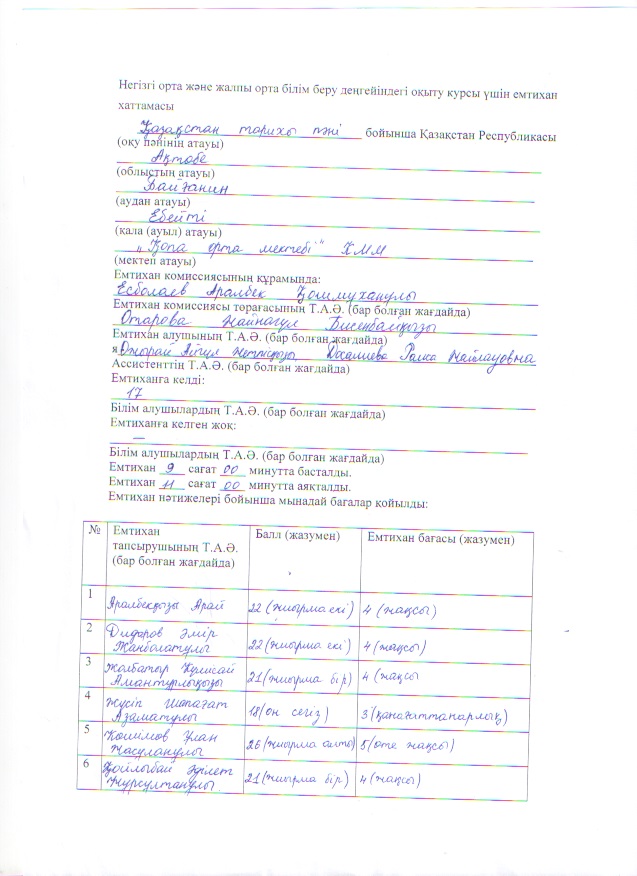 Негізгі орта және жалпы орта білім беру деңгейіндегі оқыту курсы үшін емтихан
хаттамасы
Қазақстан тарихы пәні бойынша Қазақстан Республикасы
(оқу пәнінің атауы)
Ақтөбе
(облыстың атауы)
Байғанин
(аудан атауы)
Ебейті
(қала (ауыл) атауы)
„Қопа орта мектебі" КММ
(мектеп атауы)
Емтихан комиссиясының құрамында:
Есболаев Аралбек
Емтихан комиссиясы төрағасының Т.А.Ә. (бар болған жағдайда)
Отарова Жайнагул Бисенбайқызы
Емтихан алушының Т.А.Ә. (бар болған жағдайда)
Айгул Досалиева Раиса
Ассистенттің Т.А.Ә. (бар болған жағдайда)
Емтиханға келді:
17
Білім алушылардың Т.А.Ә. (бар болған жағдайда)
Емтиханға келген жоқ:
—
Білім алушылардың Т.А.Ә. (бар болған жағдайда)
Емтихан 9 сағат 00 минутта басталды.
Емтихан 11 сағат 00 минутта аяқталды.
Емтихан нәтижелері бойынша мынадай бағалар қойылды:
№ Емтихан тапсырушының Т.А.Ә. (бар болған жағдайда) Балл (жазумен) Емтихан бағасы (жазумен)
1 Аралбекқызы Арай 22 (жиырма екі) 4 (жақсы)
2 Дидаров Әмір Жанболатұлы 22 (жиырма екі) 4 (жақсы)
3 Жолбатыр Күмісай 21 (жиырма бір) 4 (жақсы
4 Жүсіп Шапағат Азаматұлы 18 (он сегіз) 3 (қанағаттанарлық)
5 Кошимов Ұлан Жасұланұлы 26 (жиырма алты) 5 (өте жақсы)
6 Қойлыбай Әділет Нұрсұлтанұлы 21 (жиырма бір) 4 (жақсы)